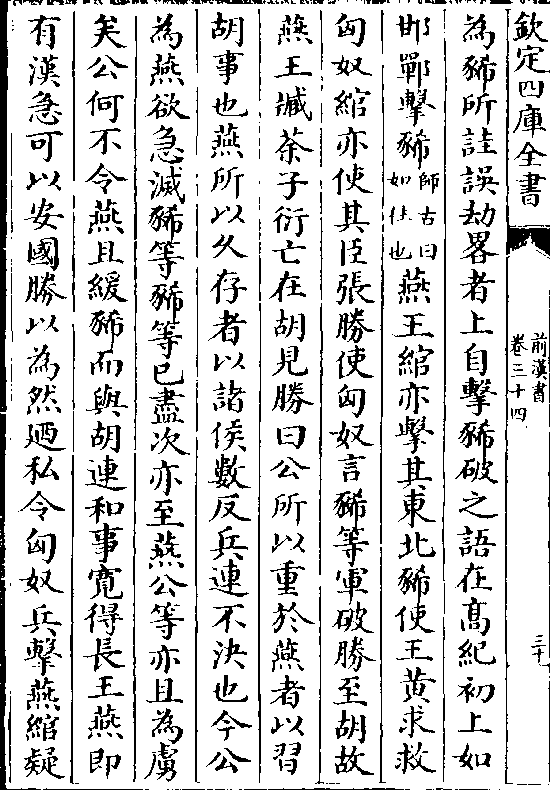 欽定四庫全書
前漢書
卷三十四
三十
為豨所詿誤劫畧者上自擊豨破之語在髙紀初上如
邯鄲擊豨師古曰如往也燕王綰亦擊其東北豨使王黄求救
匈奴綰亦使其臣張勝使匈奴言豨等軍破勝至胡故
燕王臧荼子衍亡在胡見勝曰公所以重於燕者以習
胡事也燕所以久存者以諸侯數反兵連不決也今公
為燕欲急滅豨等豨等已盡次亦至燕公等亦且為虜
矣公何不令燕且緩豨而與胡連和事寛得長王燕即
有漢急可以安國勝以為然廼私令匈奴兵擊燕綰疑